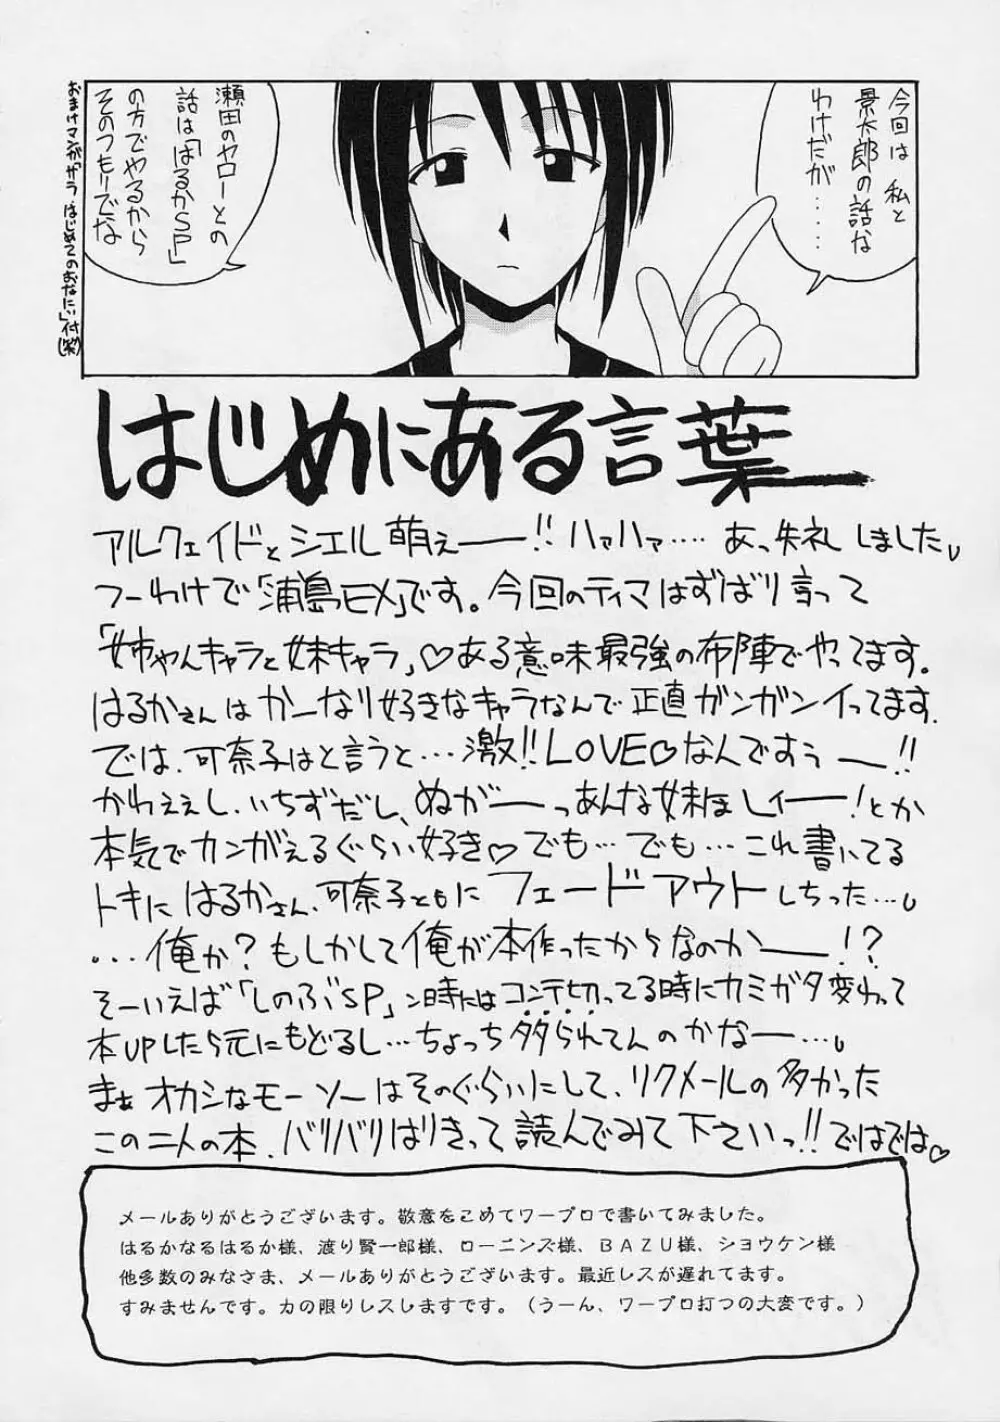 今回は私と
景太郎の話な
わけだが‥‥‥
瀬田のヤローとの
話は「はるかSP」
の方でやるから
そのつもりでな
はじめにある言葉
アルクェイドとシエル萌えー!! ハァハァ‥‥ あっ失礼しました
つーわけで「浦島EX」です。今回のティマはずばり言って
「姉ちゃんキャラと妹キャラ」♡ある意味最強の布陣でやってます。
はるかさんはかーなり好きなキャラなんで正直ガンガンイってます.
では、可奈子はと言うと…激!!LOVE♡なんですぅー!!
かわええし、いちずだし、ぬがーっあんな妹ほしィー!とか
本気でカンがえるぐらい好き♡でも…でも…これ書いてる
トキにはるかさん、可奈子ともにフェードアウトしちった…
…俺か?もしかして俺が本作ったからなのかー!?
そーいえば「しのぶSP」ン時にはコンテ切ってる時にカミガタ変わって
本UPしたら元にもどるし…ちょっち多られてんのかなー…
まぁオカシなモーソーはそのぐらいにして、リクメールの多かった
この二人の本、バリバリはりきって読んでみて下さいっ!!ではでは♡
メールありがとうございます。敬意をこめてワープロで書いてみました。
はるかなるはるか様、渡り賢一郎様、ローニンズ様、BAZU様、ショウケン様
他多数のみなさま、メールありがとうございます。最近レスが遅れてます。
すみませんです。力の限りレスしますです。（うーん、ワープロ打つの大変です。）